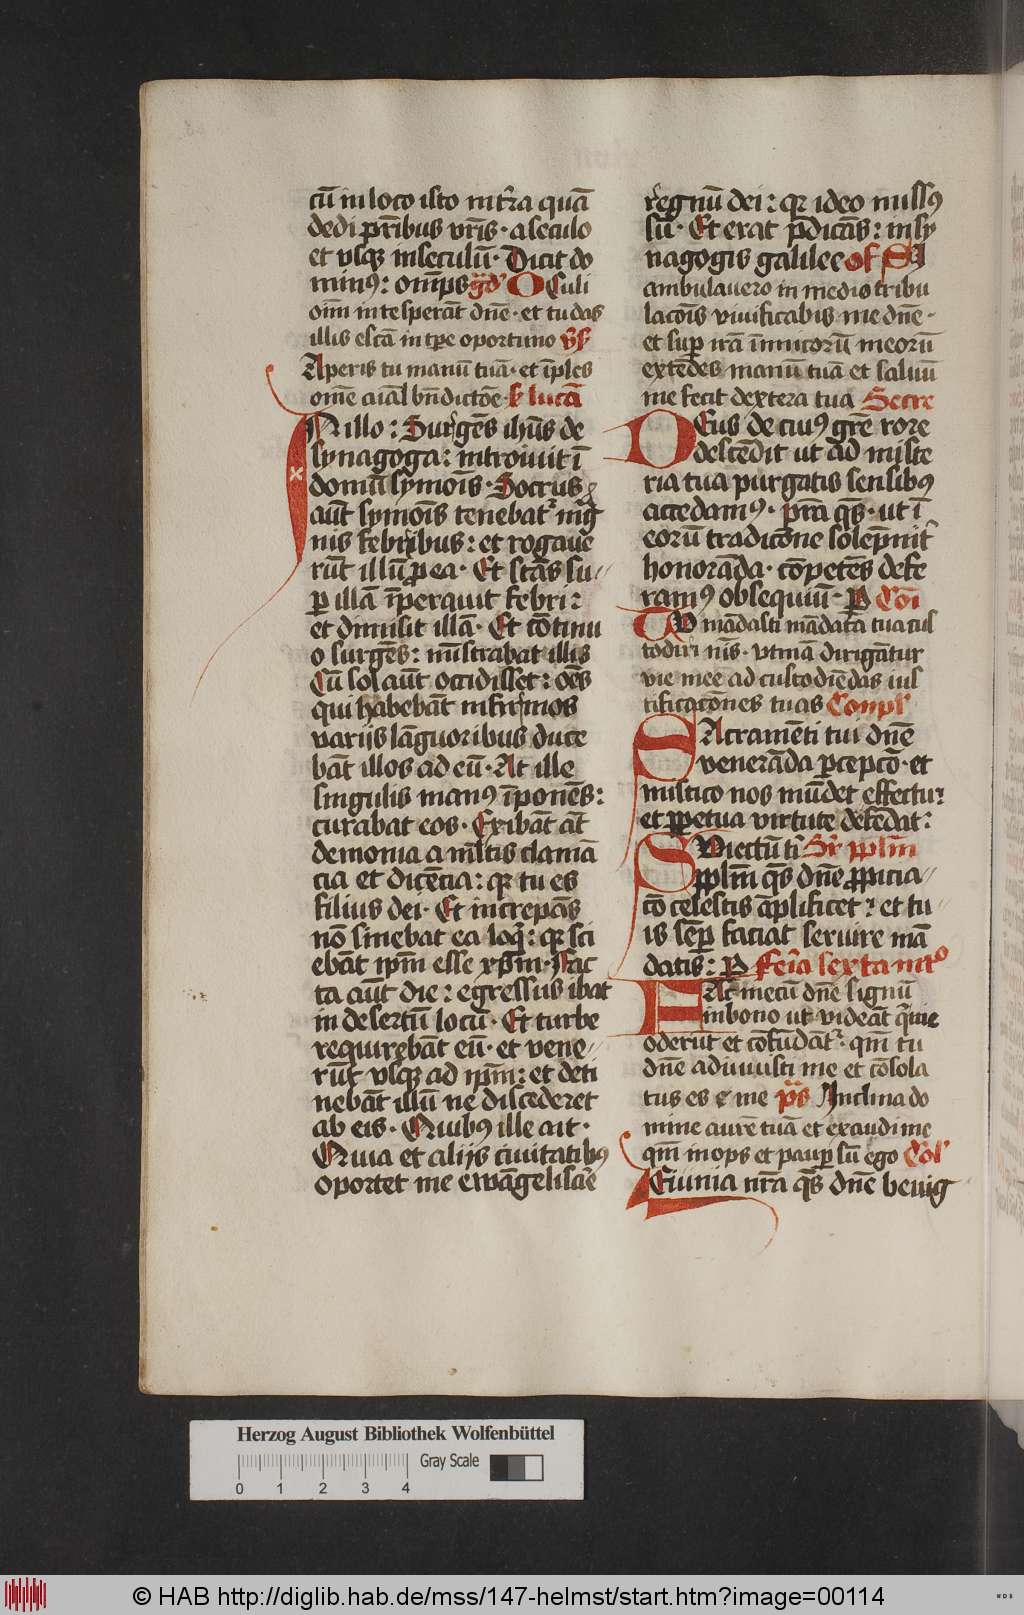 cū in loco isto in tr̄a quā
dedi pr̄ibus vr̄is · a seculo
et vsq; in seculū · Dicit do
minꝰ : om̄ps gͣdͣ Oculi
oīm in te sperāt dn̄e · et tu das
illis escā in tp̄e oportuno v̄s
Aperis tu manū tuā · et īples
om̄e aīal bn̄dictōe · s lucā
IN illo : Surgēs ihūs de
synagoga : introiuit ī
domū symōis · Socrus
aūt symōis tenebatͬ mͣg
nis febribus : et rogaue
rūt illū ꝓ ea · Et stās su
ꝑ illā īperauit febri :
et dimisit illā · Et cōtinu
o surgēs : mīstrabat illis
Cū sol aūt occidisset : oēs
qui habebāt infirmos
varijs lāguoribus duce
bāt illos ad eū · At ille
singulis manꝰ īponēs :
curabat eos · Exibāt āt
demonia a ml̄tis clamā
cia et dicēcia : qꝛ tu es
filius dei · Et increpās
nō sinebat ea loqͥ : qꝛ sci
ebāt ip̄m esse xp̄m · Fac
ta aūt die : egressus ibat
in desertū locū · Et turbe
requirebāt eū · et vene
rūt vsq; ad ip̄m : et deti
nebāt illū ne discederet
ab eis · Quibꝰ ille ait ·
Quia et alijs ciuitatibꝰ
oportet me ewāgelisāe
regnū dei : qꝛ ideo missꝰ
sū · Et erat p̄dicās : in sy
nagogis galilee of Si
ambulauero in medio tribu
lacōis viuificabis me dn̄e ·
et suꝑ irā īimicorū meorū
extēdes manū tuā et saluū
me fecit dextera tua Secre
DEus de cuiꝰ grē rore
descēdit ut ad miste
ria tua purgatis sensibꝰ
accedamꝰ · p̄sta qs̄ · ut ī
eorū tradicōne solēpnitͬ
honorāda · cōpetēs defe
ramꝰ obsequiū · P Cōi
TV mādasti mādata tua cus
todiri nīs · vtinā dirigātur
vie mee ad custodiēdas ius
tificacōnes tuas Conplͬ
SAcramēti tui dn̄e
venerāda ꝑcepcō · et
mistico nos mūdet effectu :
et ꝑpetua virtute defēdat :
SVbiectū tͥ Sr̄ pplm̄
pplm̄ qs̄ dn̄e ꝓpicia
cō celestis āplificet : et tu
is sēꝑ faciat seruire mā
datis : P Feria sexta intͦ
FAc mecū dn̄e signū
in bono ut videāt qͥ me
oderūt et cōfūdātͬ · qm̄ tu
dn̄e adiuuisti me et cōsola
tus es me ps̄ Inclina do
mine aurē tuā et exaudi me
qm̄ inops et pauꝑ sū ego Colͬ
IEiunia nr̄a qs̄ dn̄e benig
Herzog August Bibliothek Wolfenbüttel
Gray Scale
0 1 2 3 4
© HAB http://diglib.hab.de/mss/147-helmst/start.htm?image=00114